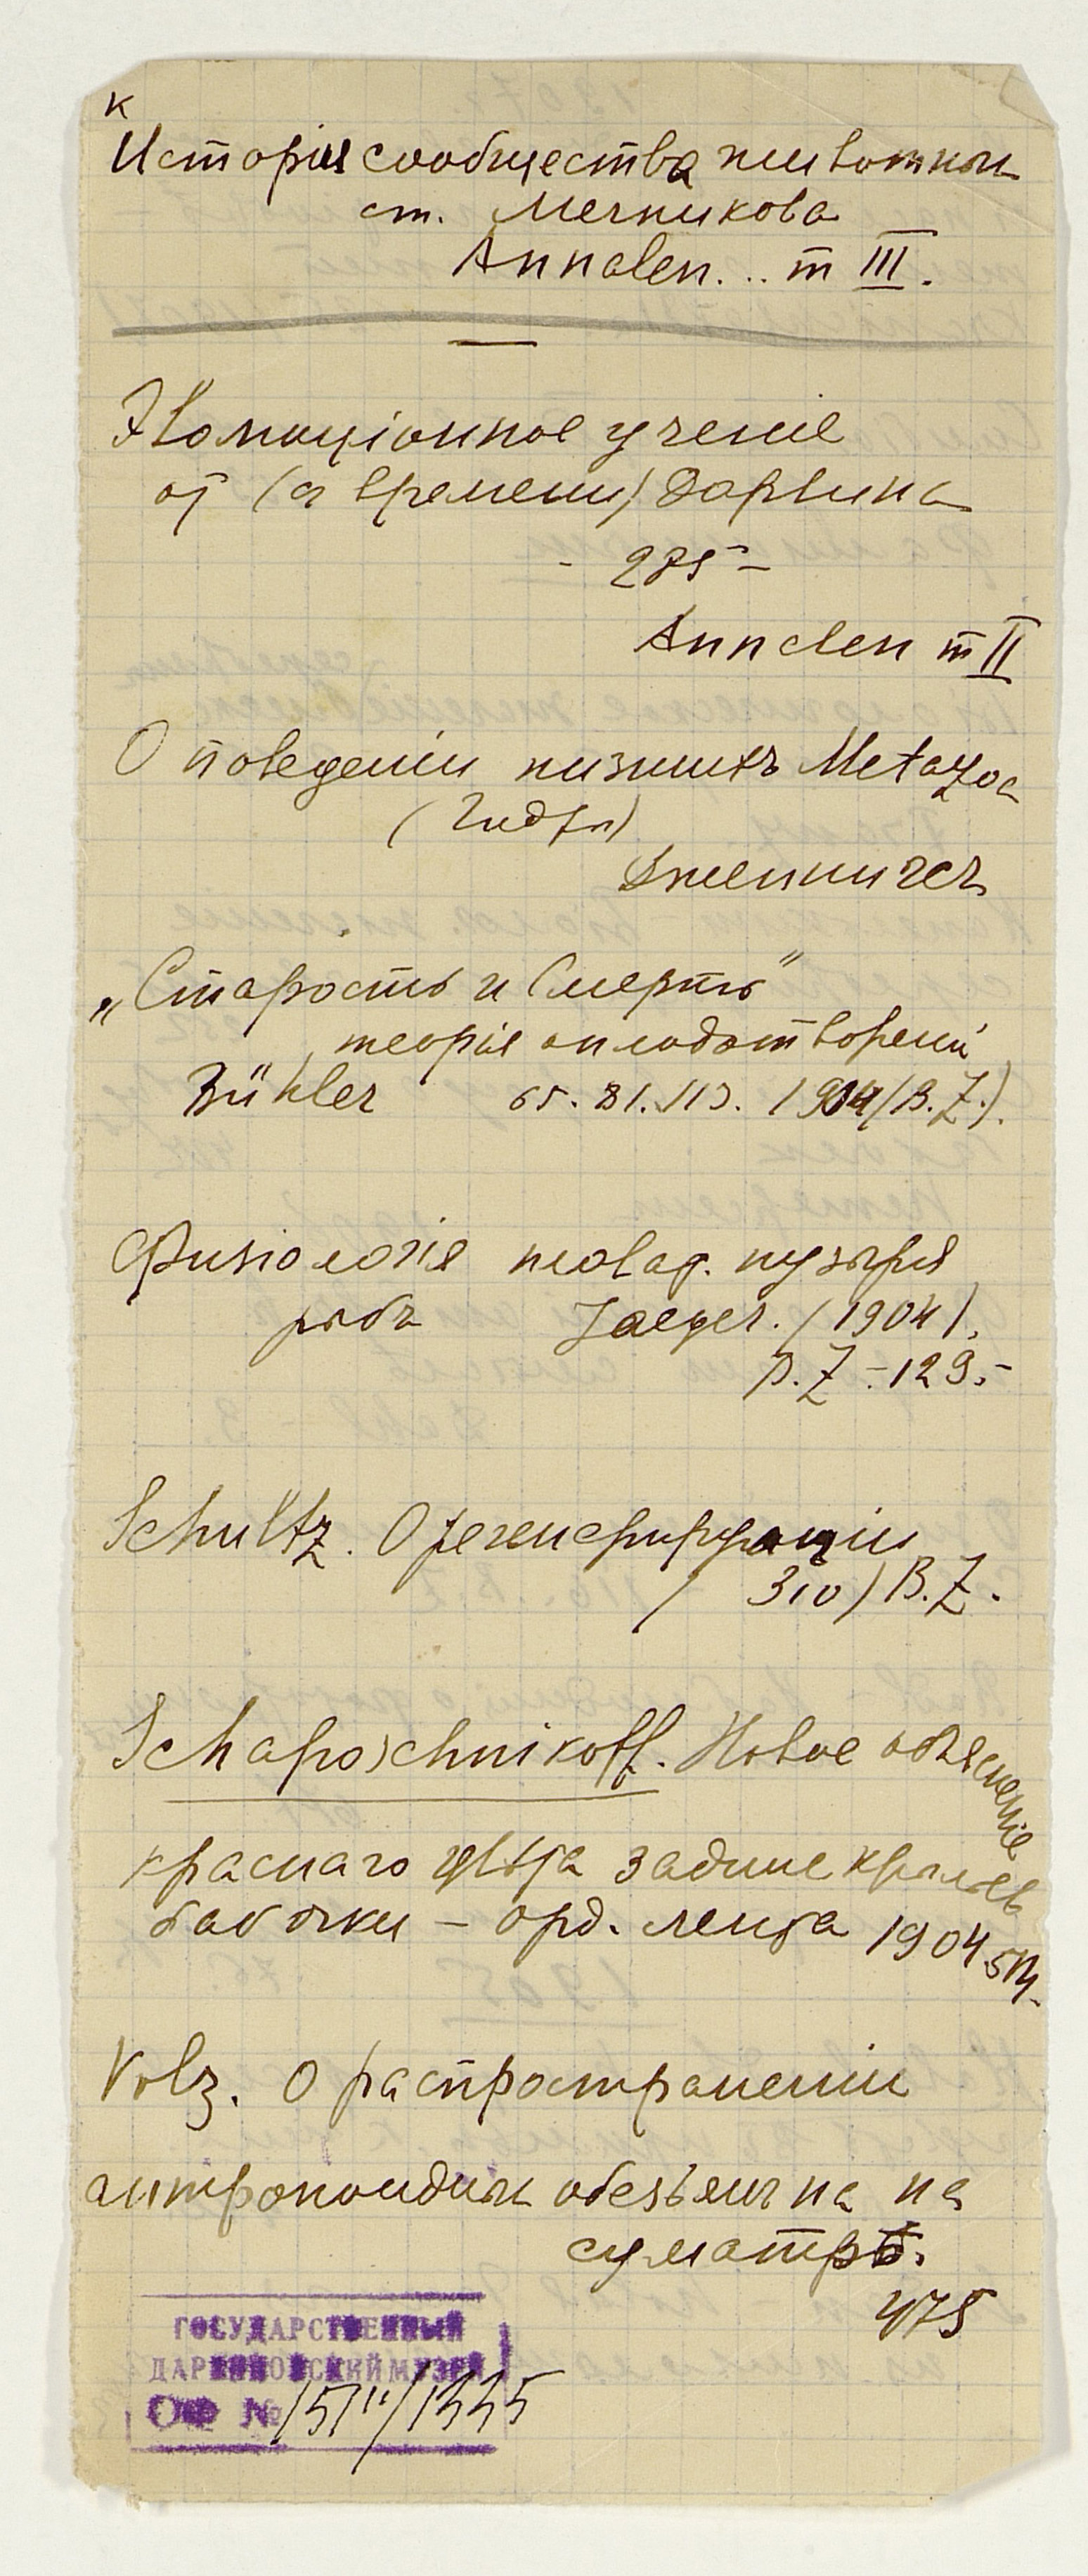 к
Исторія сообщества животных
ст. Мечникова
Annalen... т III.
Эволюціонное ученіе
от (с времени) Дарвина
- 285 -
Annalen т II
О поведеніи низшихъ Metazoa
(Гидра)
Дженнингсъ
„Старость и Смерть"
теорія оплодотворенія
Bühler 65. 81. 113. 1904 (B.Z.).
Физіологія плават. пузыря
рыбъ Jaeger. (1904).
B.Z - 129.-
Schultz. О регенерирраціи
( 310) B.Z.
Schaposchnikoff. Новое объясненіе
краснаго цвѣта задние крыльев
бабочки - орд. лента 1904
Volz. О распространеніи
антропоидных обезьянъ на на
суматрѣ.
475
ГОСУДАРСТВЕННЫЙ
ДАРВИНОВСКИЙ МУЗЕЙ
ОФ № 15111/1335